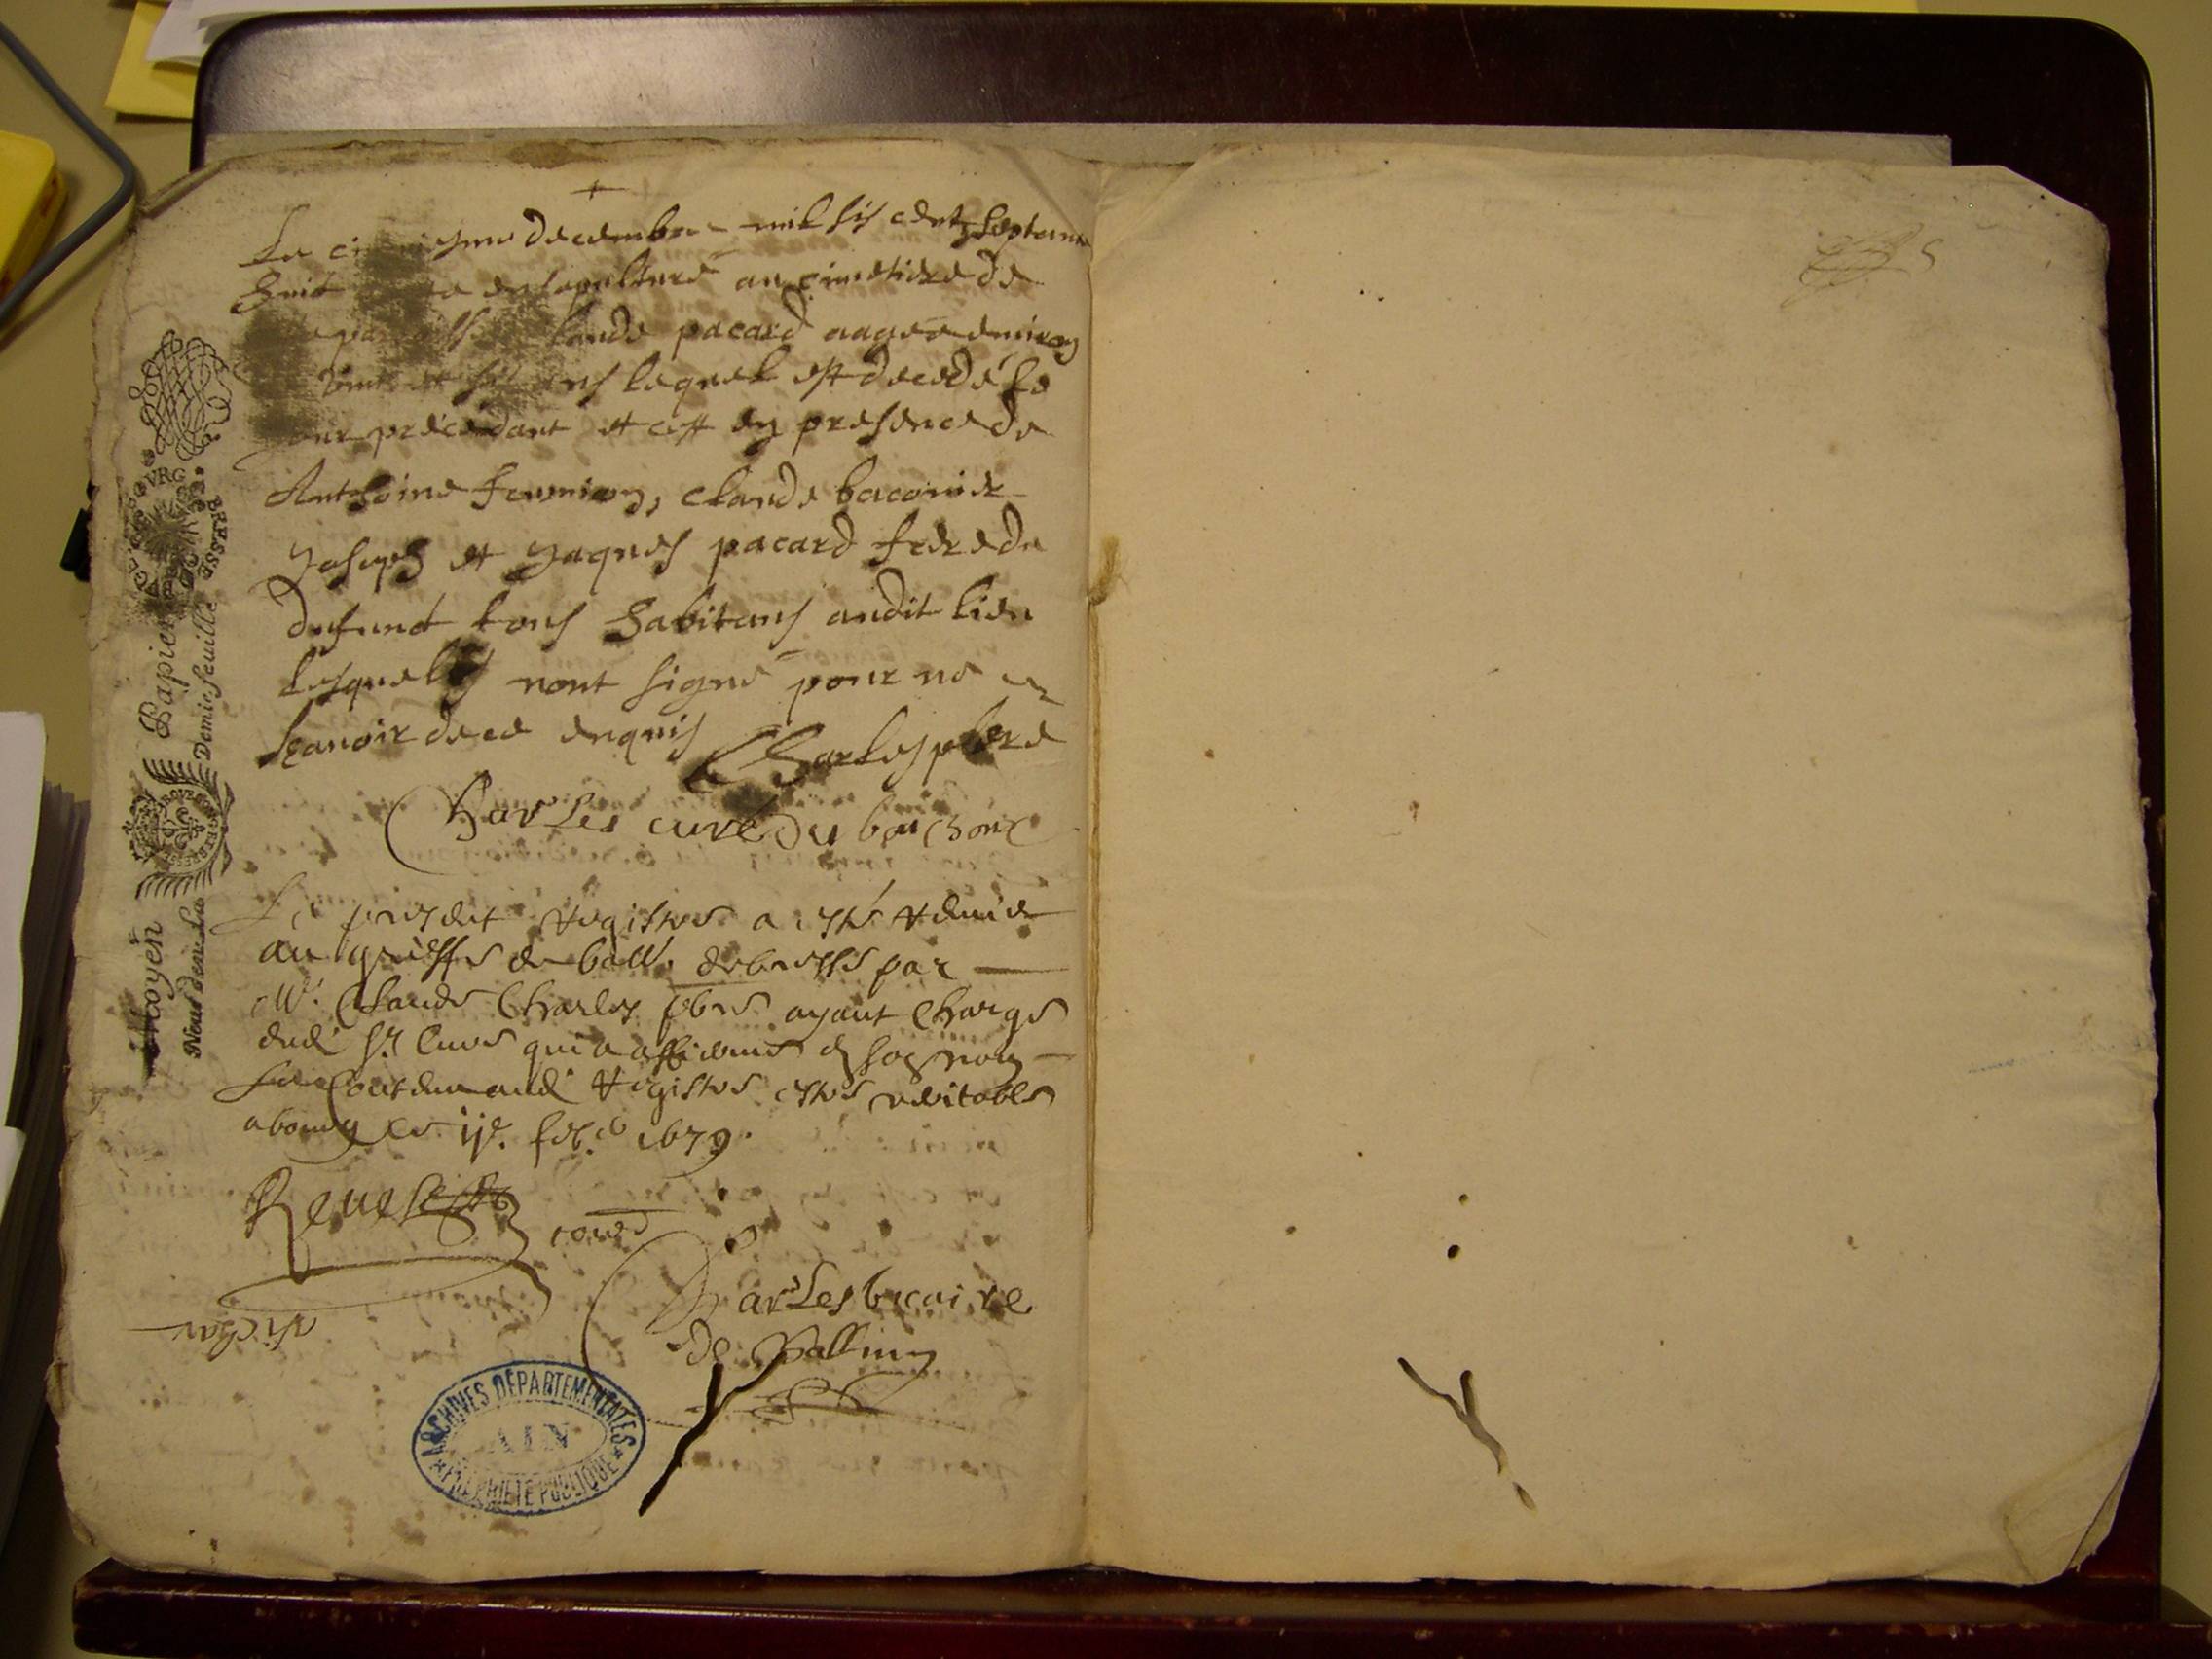 Le ci iesme decembre mil six centz septente
huit a e ensepulturé au cimetiere de
paroisse Claude pacard aagee environ
vint et six ans lequel est decedé le
jour précédant et cest en presence de
Anthoine fermion, Claude baconier
Joseph et Jaques pacard frere du
defunct tous habitans audit lieu
lesquels nont signé pour ne
scavoir de ce enquis Charles pbere
Charles curé du bouchoux
Le present Registre a esté remis
au greffe de ball. de bresse par
Mr. Claude Charles pbre ayant charge
dud. Sr. Cure qui a affirme en son nom
le contenu aud. Registre estre veritable
a bourg ce ije. feb. 1679.
Charles bicaire
de
Moyen Papier
Neuf den. La Demie feuille
BRESSE
ARCHIVES DÉPARTEMENTALES
AIN
PROPRIÉTÉ PUBLIQUE
5